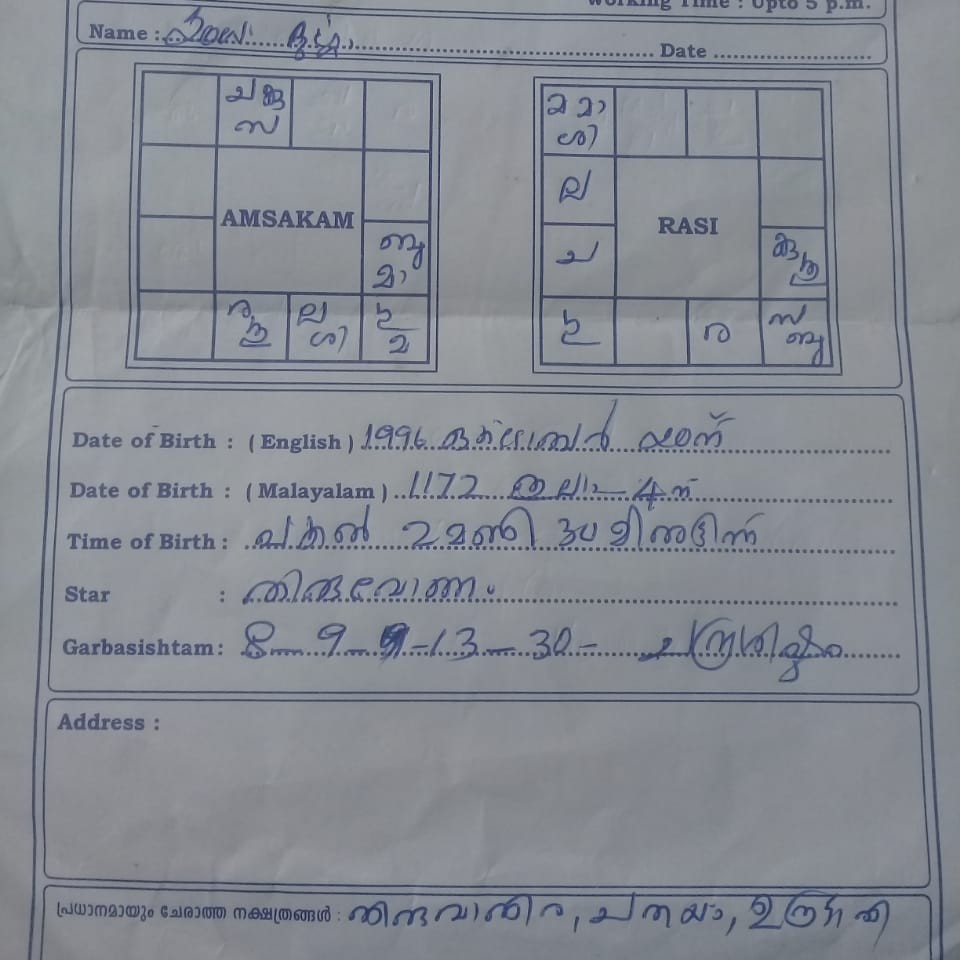 Working Time : Upto 5 p.m.
Name :
Date
ച കു
സ
മ മാ
ശി
ല
AMSAKAM
RASI
ച
കു ശു
ബു
മാ
ര
ശു
ല
ശി
മ
ര
സ
ബു
Date of Birth : ( English ) 1996 ഒക്ടോബർ
Date of Birth : ( Malayalam ) 1172 തുലാം 4 ന്
Time of Birth : പകൽ 2 മണി 30 മിനുട്ടിന്
Star : തിരുവോണം
Garbasishtam : 8 - 9 - 13 - 30 - ചന്ദ്രശിഷ്ടം
Address :
പ്രധാനമായും ചേരാത്ത നക്ഷത്രങ്ങൾ : തിരുവാതിര, ചതയം,